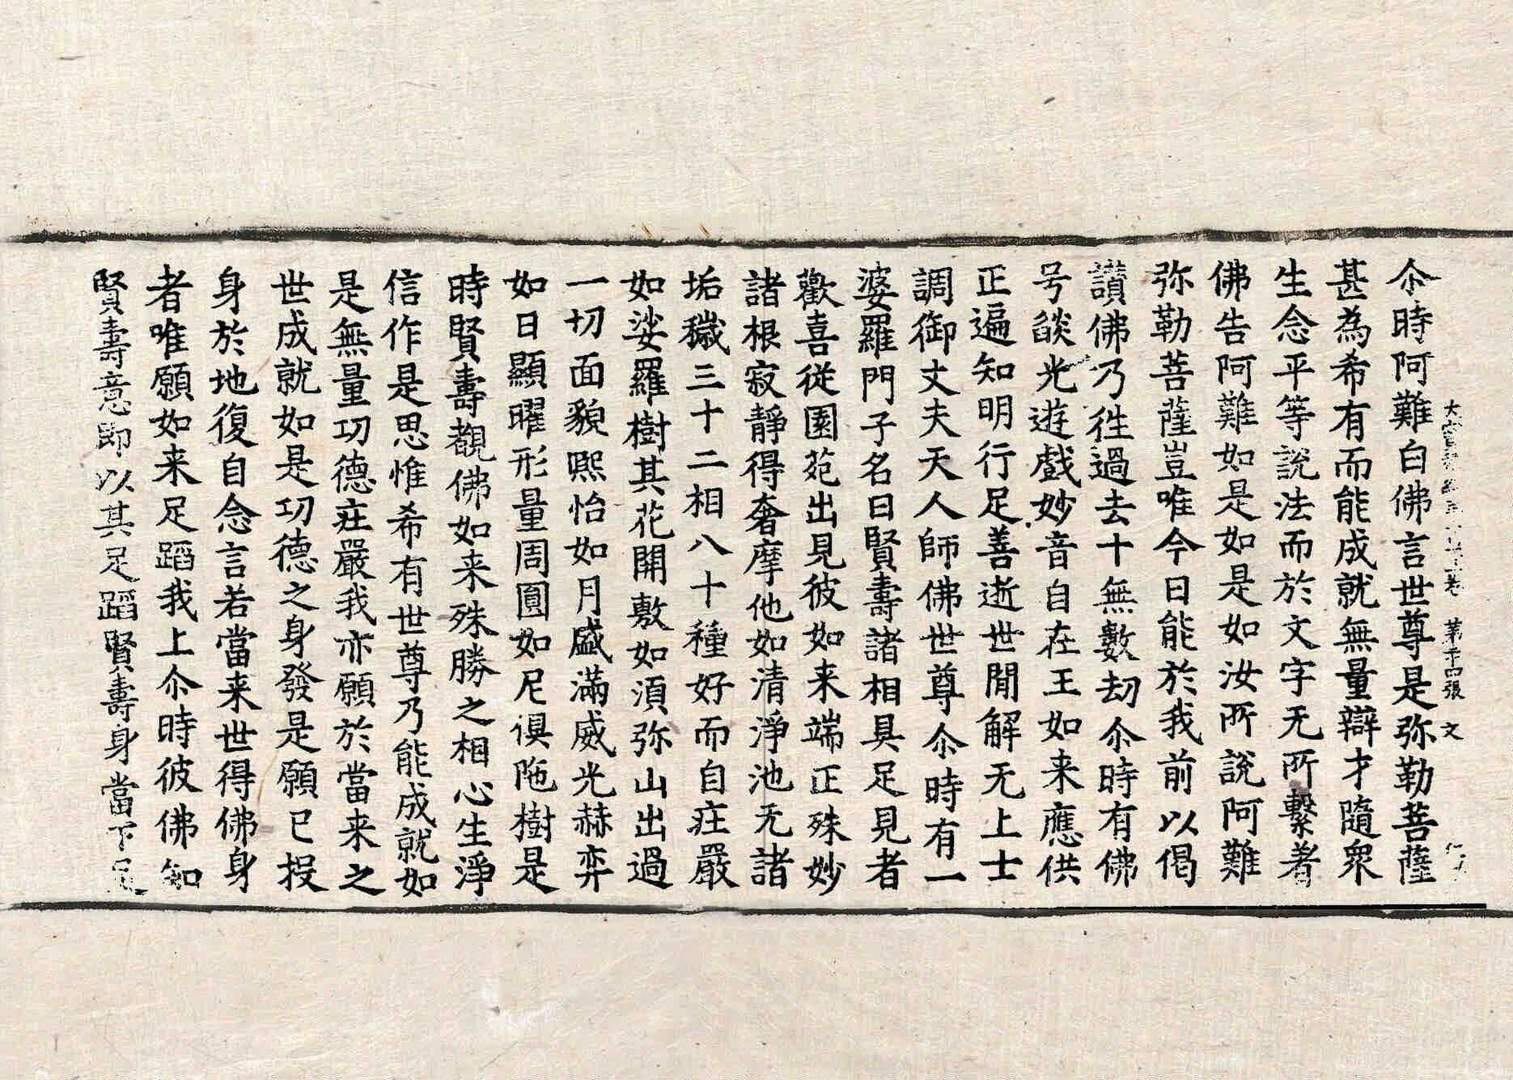 尒時阿難白佛言世尊是弥勒菩薩
甚為希有而能成就無量辯才隨衆
生念平等說法而於文字无所繫著
佛告阿難如是如是如汝所說阿難
弥勒菩薩豈唯今日能於我前以偈
讃佛乃徃過去十無數劫尒時有佛
号燄光遊戲妙音自在王如来應供
正遍知明行足善逝世閒解无上士
調御丈夫天人師佛世尊尒時有一
婆羅門子名曰賢壽諸相具足見者
歡喜從園苑出見彼如来端正殊妙
諸根寂靜得奢摩他如清淨池无諸
垢穢三十二相八十種好而自莊嚴
如娑羅樹其花開敷如須弥山出過
一切面貌熈怡如月盛滿威光赫弈
如日顯曜形量周圎如尼俱陁樹是
時賢壽觀佛如来殊勝之相心生淨
信作是思惟希有世尊乃能成就如
是無量功德莊嚴我亦願於當来之
世成就如是功德之身發是願已投
身於地復自念言若當来世得佛身
者唯願如来足蹈我上尒時彼佛知
賢壽意即以其足蹈賢壽身當下足
大寶 卷 第十四張 文